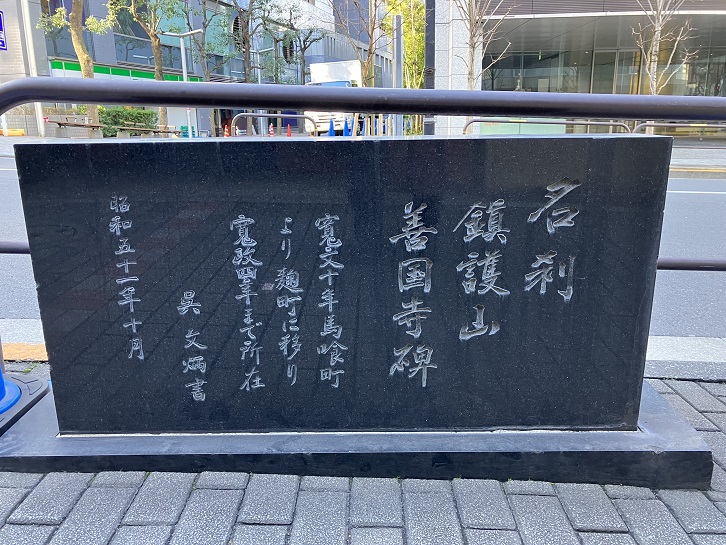 名刹
鎮護山
善国寺碑
寛文十年馬喰町
より麹町に移り
寛政四年まで所在
呉文炳書
昭和五十一年十月